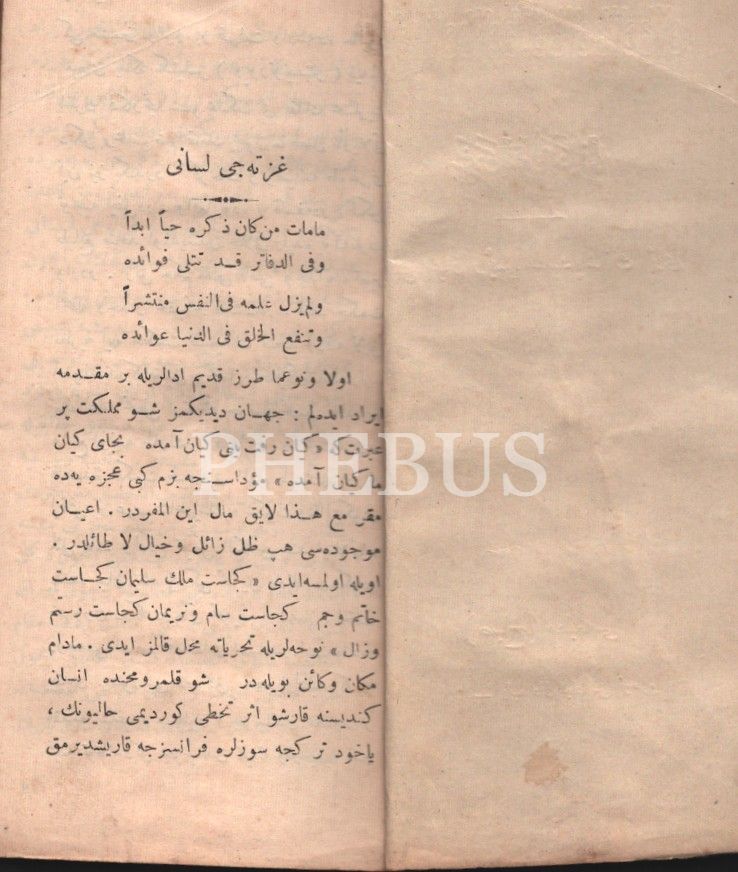 غزته‌جی لسانی
مامات من كان ذكره حياً ابداً
وفی الدفاتر قـد تتلی فوائده
ولم يزل علمه فی‌النفس منتشراً
وتنفع الخلق فی الدنیا عوائده
اولا ونوعما طرز قدیم ادالریله بر مقـدمه
ایراد ایده‌لم : جهـان دیدیكمز شـو مملكت پر
عبرت‌كه « كیان رفت پی كیان آمده بجای كیان
ماكیان آمده » مؤداسـنجه بزم كبی عجزه یه‌ده
مقر مع هـذا لایق مال ابن المفردر . اعیـان
موجوده‌سی هپ ظل زائل وخیال لا طائلدر .
اویله اولمسه‌ایدی « كجاست ملك سلیمان كجـاست
خاتم وجم كجاست سام ونریمان كجاست رستم
وزال » نوحه‌لریله تحریاته محل قالمز ایدی . مادام
مكان وكائن بویله‌در شو قلمرو انسان
كندیسنه قارشو اثر تخطی كوردیمی حالیونك ،
یاخود تركجه سوزلره فرانسزجه قاریشدیرمق
PHEBUS